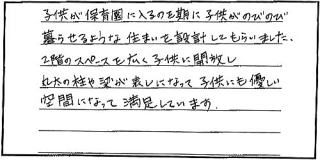 子供が保育園に入るのを期に子供がのびのび
暮らせるような住まいを設計してもらいました。
2階のスペースを広く子供に開放し
木の柱や梁が表しになって子供にも優しい
空間になって満足しています。